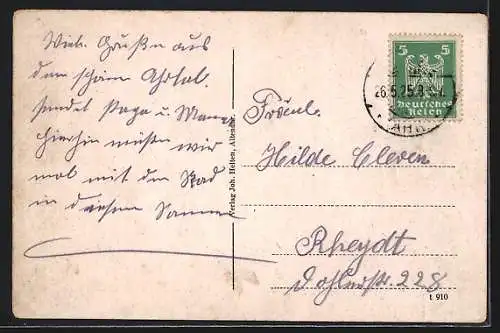 Viele Grüße aus
dem schönen Ahrtal
sendet Papa u. Mama
Hierhin müssen wir
mal mit dem Rad
in diesem Sommer
Verlag Joh. Heinen, Altenahr
5 5
26.5.25
Deutsches
Reich
AHR
Fräul.
Hilde Cleven
Rheydt
Dahlenerstr 228
t 910